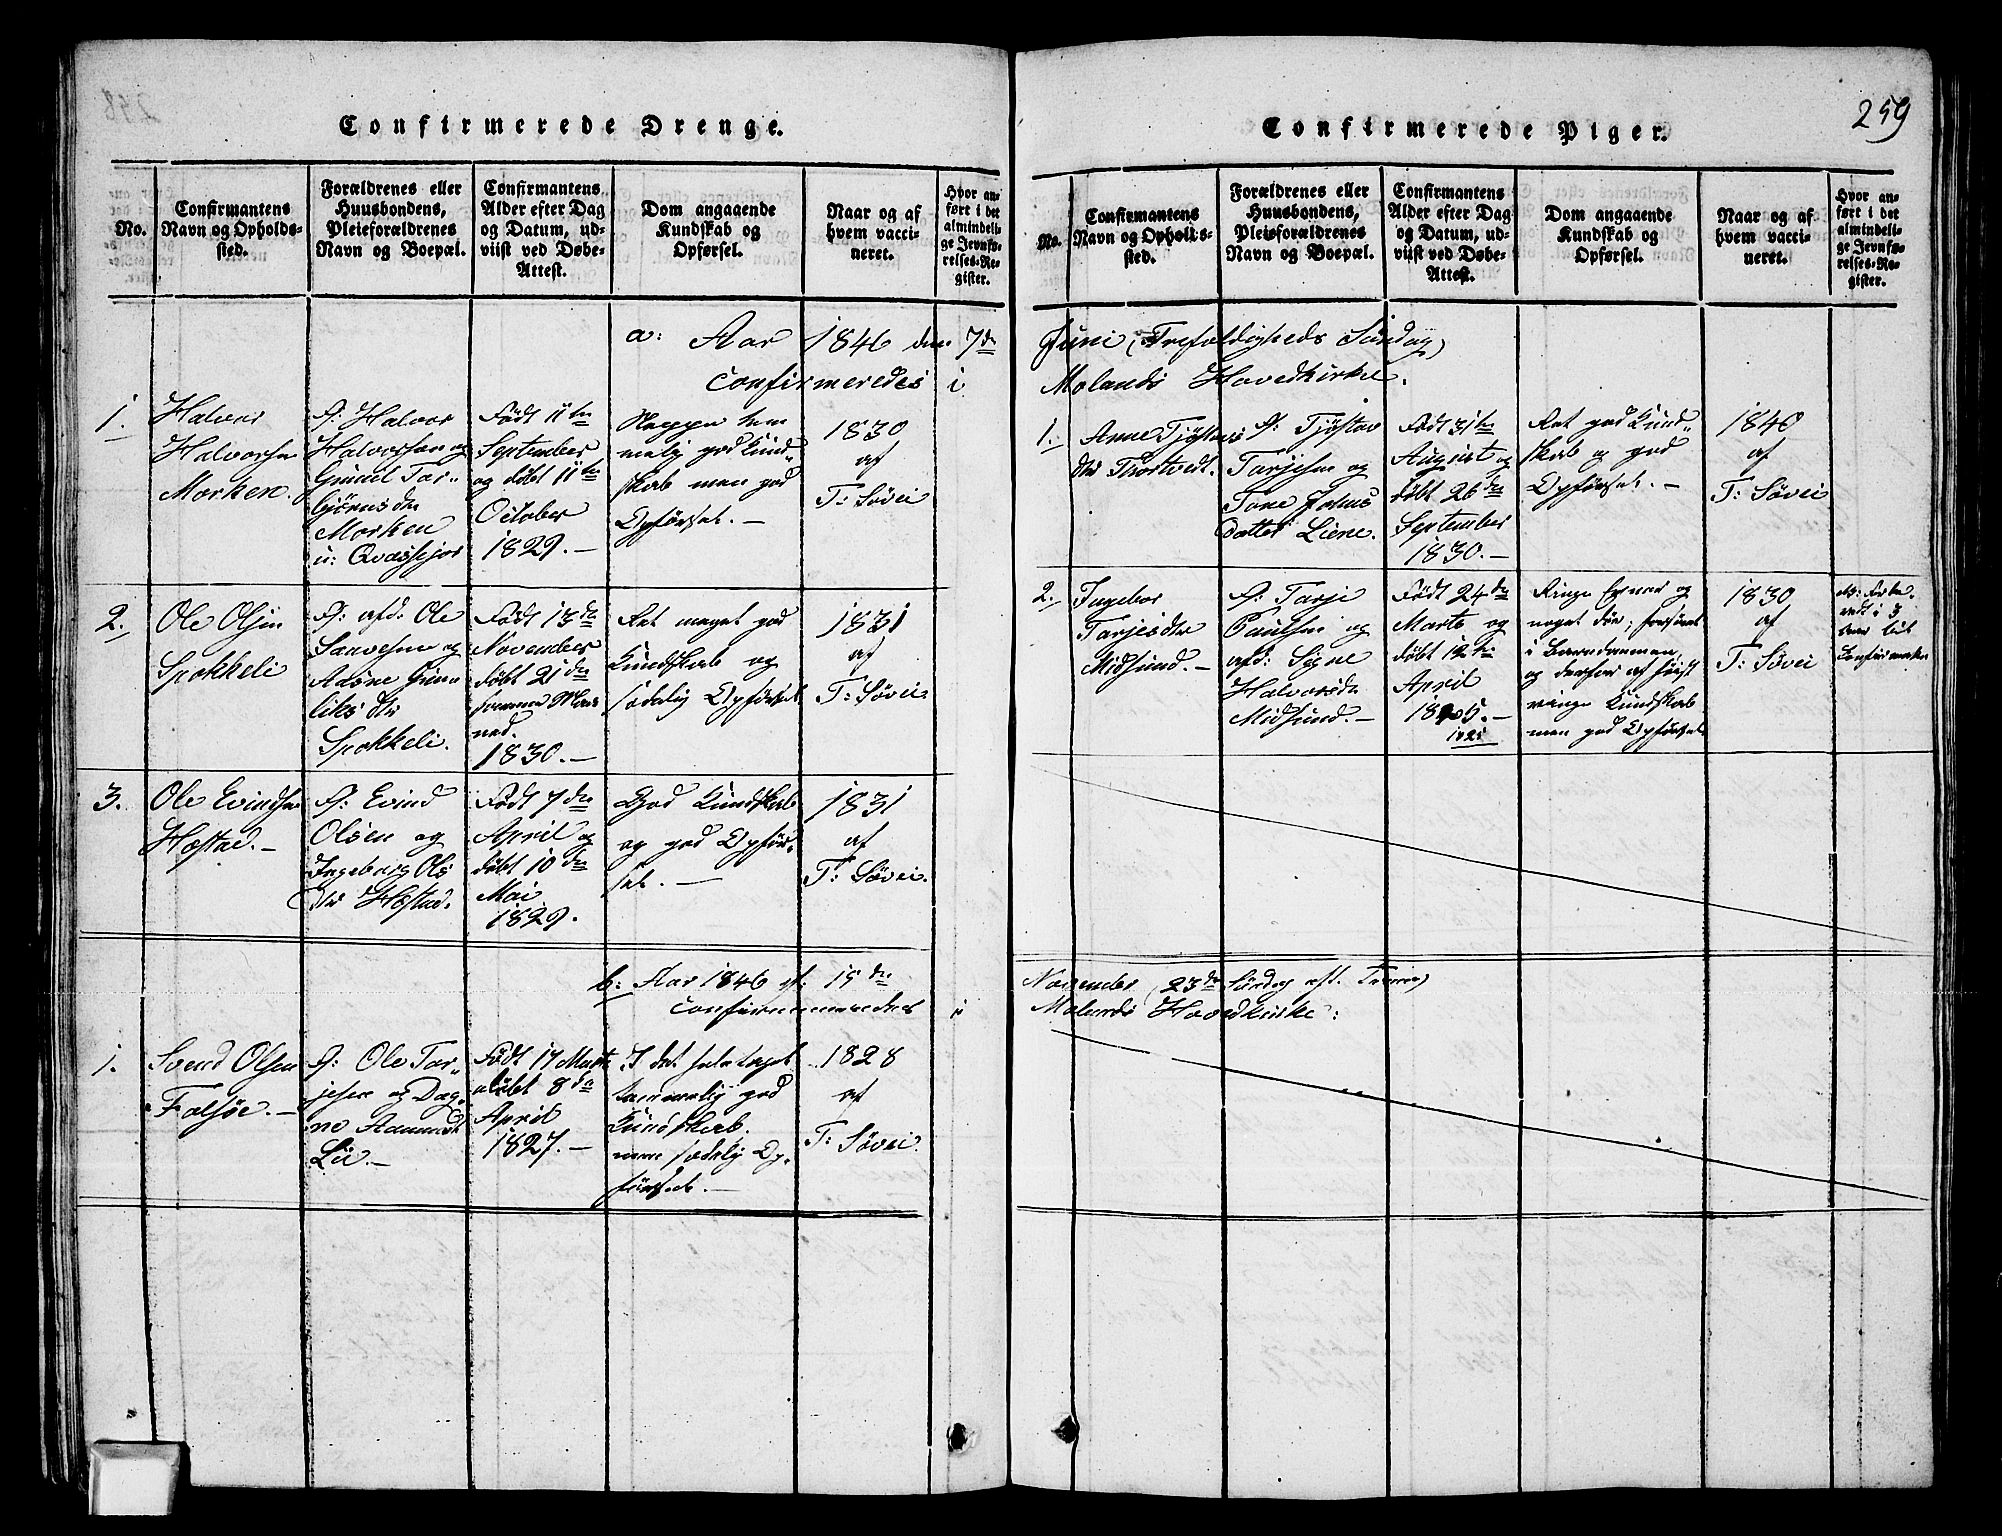 Confirmerede Drenge.
No.
Confirmantens
Navn og Opholds-
sted.
Forældrenes eller
Huusbondens,
Pleieforældrenes
Navn og Boepæl.
Confirmantens
Alder efter Dag
og Datum, ud-
viist ved Døbe-
Attest.
Dom angaaende
Kundskab og
Opførsel.
Naar og af
hvem vacci-
neret.
Hvor an-
ført i det
almindeli-
ge Jevnfø-
relses-Re-
gister.
a: Aar 1846 den 7de
Confirmeredes i
1.
Halvor
Halvorsen
Morken.
F: Halvor
Halvorsen og
Gunild Tor-
bjørnsdtr
Morken
u: Qvassejor
Født 11te
September
og døbt 11te
October
1829.—
Neppe tem
melig god Kund-
skab men god
Opførsel.—
1830
af
T: Søvei
2.
Ole Olsen
Spokkeli
F: afd: Ole
Sauvesen og
Aasne Gun
liks dtr
Spokkeli.
Født 13de
November
døbt 21de
samme Maa
ned.
1830.—
Ret meget god
Kundskab og
sædelig Opførsel
1831
af
T: Søvei
3.
Ole Evindsen
Hæstad.—
F: Evind
Olsen og
Ingeborg Ols
dtr Hæstad.
Født 7de
April og
døbt 10de
Mai
1829.
God Kundskab
og god Opfør-
sel.—
1831
af
T: Søvei.
b: Aar 1846 15de
Confirmeredes i
1.
Svend Olsen
Falsøe.—
F: Ole Tar-
jesen og Dag-
ne Aanunds
Lii.—
Født 17 Marts
døbt 8de
April
1827.—
I det hele taget
temmelig god
Kundskab.
men sædelig Op-
førsel.—
1828
af
T: Søvei.
259
Confirmerede Piger.
No.
Confirmantens
Navn og Opholds-
sted.
Forældrenes eller
Huusbondens,
Pleieforældrenes
Navn og Boepæl.
Confirmantens
Alder efter Dag
og Datum, ud-
viist ved Døbe-
Attest.
Dom angaaende
Kundskab og
Opførsel.
Naar og af
hvem vacci-
neret.
Hvor an-
ført i det
almindeli-
ge Jevnfø-
relses-Re-
gister.
Juni (Trefoldigheds Søndag)
Molands Hovedkirke.
1.
Anne Tjøstovs
dtr Thortvedt.
F: Tjøstov
Tarjesen og
Tone Johns
datter Liene.
Født 31te
August og
døbt 26de
September
1830.—
Ret god Kund-
skab og god
Opførsel.—
1840
af
T: Søvei
2.
Ingebor
Tarjesdtr
Midsund.—
F: Tarje
Paulsen og
afd: Signe
Halvorsdtr
Midsund.—
Født 24de
Marts og
døbt 12te
April
1825.—
1825
Ringe Evner og
noget døv; forsømt
i Barndommen,
og derfor af høist
ringe Kundskab
men god Opførsel
1830
af
T: Søvei
til
Confirmation
November (23de Søndag eft. Trinit)
Molands Hovedkirke: